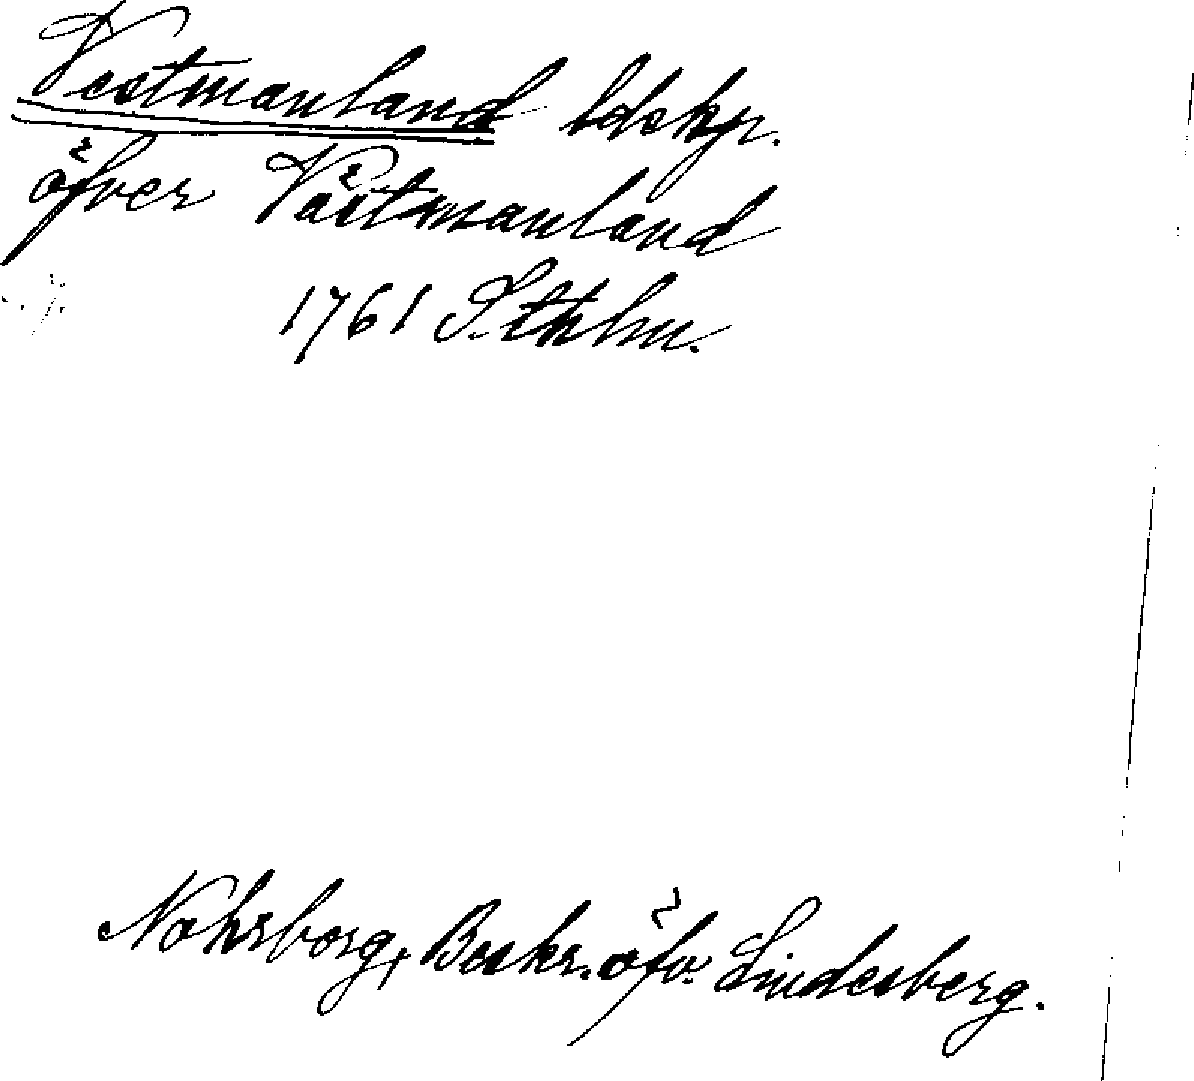 Vestmanland ldskp.
öfver Västmanland
1761 S:thlm.
Nohrborg, Beskr. öfv. Lindesberg.